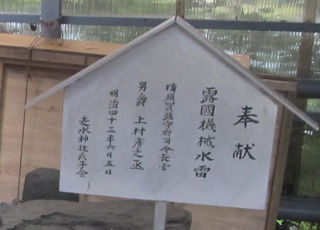 奉献
露國機械水雷
横須賀鎮守府司令長官
男爵 上村彦之丞
明治四十三年六月五日
走水神社氏子会